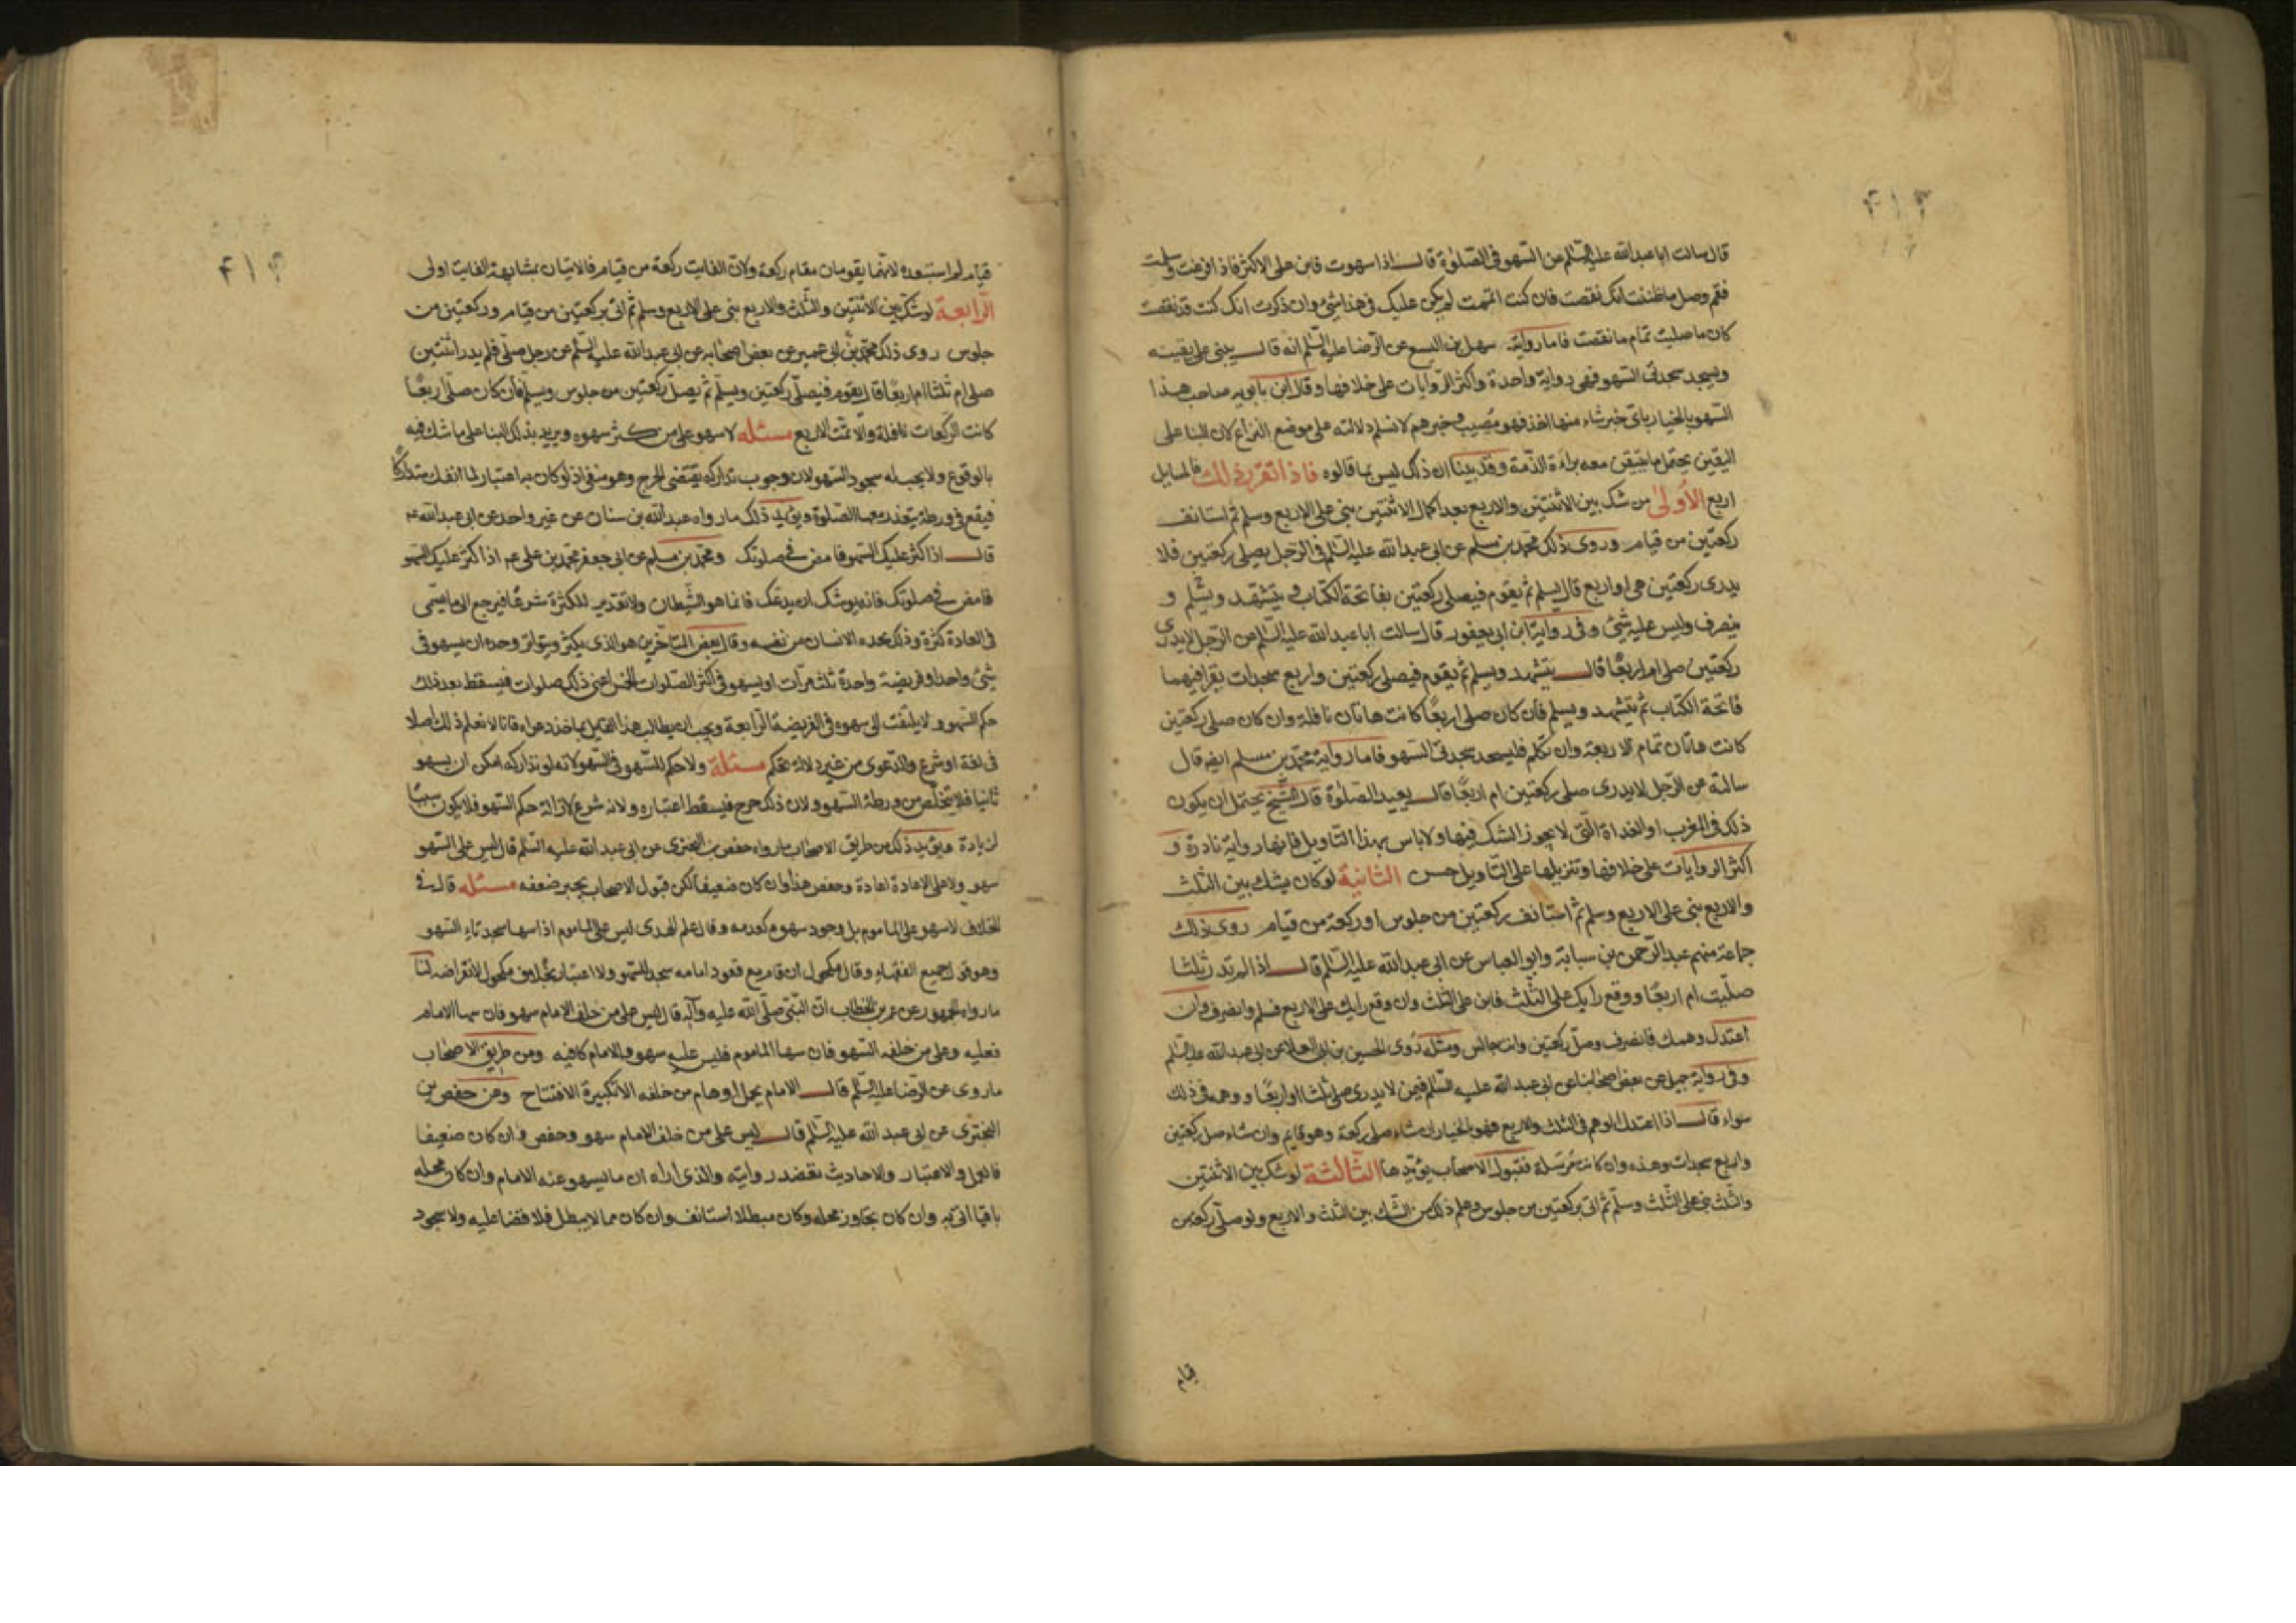 قال سالت ابا عبدالله عليه السلم عن السهو فى الصلوة قال اذا سهوت فابن على الاكثر فاذا فرغت وسلمت
فقم وصل ما ظننت انك نقصت فان كنت اتممت لم يكن عليك فى هذا شئ وان ذكرت انك كنت قد نقصت
كان ما صليت تمام ما نقصت فاما رواية سهل بن اليسع عن الرضا عليه السلم انه قال يبنى على يقينه
ويسجد سجدتى السهو ففى رواية واحدة واكثر الروايات على خلافها وقال ابن بابويه صاحب هذا
السهو بالخيار باى خبر شاء منها اخذ فهو مصيب فخبرهم لا نسلم دلالته على موضع النزاع لان البنا على
اليقين يحتمل ما يتيقن معه براءة الذمة وقد بينا ان ذلك ليس بما قالوه فاذا تقرر ذلك فالمسايل
اربع الأولى من شك بين الاثنتين والاربع بعد اكمال الاثنتين بنى على الاربع وسلم ثم استانف
ركعتين من قيام وروى ذلك محمد بن مسلم عن ابى عبدالله عليه السلم فى الرجل يصلى ركعتين فلا
يدرى ركعتين هى او اربع قال يسلم ثم يقوم فيصلى ركعتين بفاتحة الكتاب و يتشهد ويسلم و
ينصرف وليس عليه شئ وفى رواية ابن ابى يعفور قال سالت ابا عبدالله عليه السلم عن الرجل لا يدرى
ركعتين صلى ام اربعا قال يتشهد ويسلم ثم يقوم فيصلى ركعتين واربع سجدات يقرا فيهما
فاتحة الكتاب ثم يتشهد ويسلم فان كان صلى اربعا كانت هاتان نافلة وان كان صلى ركعتين
كانت هاتان تمام الاربعة وان تكلم فليسجد سجدتى السهو فاما رواية محمد بن مسلم ايضا قال
سالته عن الرجل لا يدرى صلى ركعتين ام اربعا قال يعيد الصلوة قال الشيخ يحتمل ان يكون
ذلك فى المغرب او الغداة التى لا يجوز الشك فيها ولا باس بهذا التاويل فانها رواية نادرة و
اكثر الروايات على خلافها وتنزيلها على التاويل حسن الثانية لو كان يشك بين الثلث
والاربع بنى على الاربع وسلم ثم استانف ركعتين من جلوس او ركعة من قيام روى ذلك
جماعة منهم عبد الرحمن بن سيابة وابو العباس عن ابى عبدالله عليه السلم قال اذا لم تدر ثلثا
صليت ام اربعا ووقع رايك على الثلث فابن على الثلث وان وقع رايك على الاربع فسلم وانصرف وان
اعتدل وهمك فانصرف وصل ركعتين وانت جالس ومثله روى الحسين بن ابى العلا عن ابى عبدالله عليه السلم
وفى رواية جميل عن بعض اصحابنا عن ابى عبدالله عليه السلم فيمن لا يدرى صلى ثلثا او اربعا ووهمه فى ذلك
سواء قال اذا اعتدل الوهم فى الثلث والاربع فهو بالخيار ان شاء صلى ركعة وهو قايم وان شاء صلى ركعتين
واربع سجدات وهذه وان كانت مرسلة فقبول الاصحاب يؤيدها الثالثة لو شك بين الاثنتين
والثلث بنى على الثلث وسلم ثم اتى بركعتين من جلوس وعلم ذلك من الشك بين الثلث والاربع ولو صلى ركعة من
قيام
٤١٣
قيام لم استبعده لانهما يقومان مقام ركعة ولان الفايت ركعة من قيام فالاتيان بمشابهة الفايت اولى
الرابعة لو شك بين الاثنتين والثلث والاربع بنى على الاربع وسلم ثم اتى بركعتين من قيام وركعتين من
جلوس روى ذلك محمد بن ابى عمير عن بعض اصحابه عن ابى عبدالله عليه السلم عن رجل صلى فلم يدر اثنتين
صلى ام ثلثا ام اربعا قال يقوم فيصلى ركعتين ويسلم ثم يصلى ركعتين من جلوس ويسلم فان كان صلى اربعا
كانت الركعات نافلة والا تمت الاربع مسئله لا سهو على من كثر سهوه ويريد بذلك البنا على ما شك فيه
بالوقوع ولا يجب له سجود السهو لان وجوب تداركه يقتضى الحرج وهو منفى اذ لو كان به اعتبار لما انفك متداركا
فيقع فى ورطة يتعذر معها الصلوة ويؤيد ذلك ما رواه عبدالله بن سنان عن غير واحد عن ابى عبدالله ع
قال اذا كثر عليك السهو فامض فى صلوتك ومحمد بن مسلم عن ابى جعفر محمد بن على ع اذا كثر عليك السهو
فامض فى صلوتك فانه يوشك ان يدعك فانما هو الشيطان ولا تقدير للكثرة شرعا فيرجع الى ما يسمى
فى العادة كثرة وذلك يجده الانسان من نفسه وقال بعض المتاخرين هو الذى يكثر ويتواتر وحده ان يسهو فى
شئ واحد او فريضة واحدة ثلث مرات او يسهو فى اكثر الصلوات الخمس اعنى ذلك صلوات فيسقط بعد ذلك
حكم السهو ولا يلتفت الى سهوه فى الفريضة الرابعة ويجب ان يطالب هذا القايل بماخذ دعواه فانا لا نعلم لذلك اصلا
فى لغة او شرع والدعوى من غير دلالة تحكم مسئلة ولا حكم للسهو فى السهو لانه لو تداركه امكن ان يسهو
ثانيا فلا يتخلص من ورطة السهو ولان ذلك حرج فيسقط اعتباره ولانه شرع لازالة حكم السهو فلا يكون سببا
لزيادة ويؤيد ذلك من طريق الاصحاب ما رواه حفص بن البخترى عن ابى عبدالله عليه السلم قال ليس على السهو
سهو ولا على الاعادة اعادة وحفص هذا وان كان ضعيفا لكن قبول الاصحاب يجبر ضعفه مسئله قال فى
الخلاف لا سهو على الماموم بل وجود سهوه كعدمه وقال علم الهدى ليس على الماموم اذا سها سجدتا السهو
وهو قول جميع الفقهاء وقال مكحول ان قام مع قعود امامه سجد للسهو ولا اعتبار بخلاف مكحول لانقراضه لنا
ما رواه الجمهور عن عمر بن الخطاب ان النبى صلى الله عليه وآله قال ليس على من خلف الامام سهو فان سها الامام
فعليه وعلى من خلفه السهو فان سها الماموم فليس عليه سهو والامام كافيه ومن طريق الاصحاب
ما روى عن الرضا عليه السلم قال الامام يحمل اوهام من خلفه الا تكبيرة الافتتاح وعن حفص بن
البخترى عن ابى عبدالله عليه السلم قال ليس على من خلف الامام سهو وحفص وان كان ضعيفا
فالعمل والاعتبار والاحاديث تعضد روايته والذى اراه ان ما يسهو عنه الامام وان كان محله
باقيا اتى به وان كان تجاوز محله وكان مبطلا استانف وان كان مما لا يبطل فلا قضا عليه ولا سجود